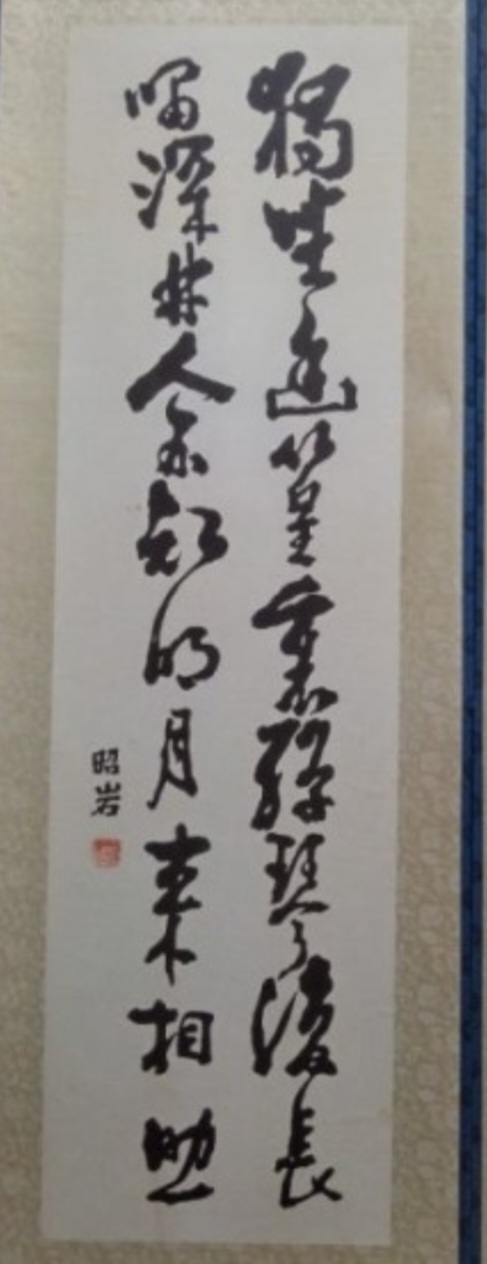 獨坐幽篁裏彈琴復長
嘯深林人不知明月来相照
昭岩